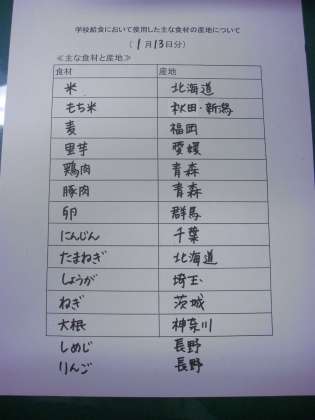 学校給食において使用した主な食材の産地について
(1月13日分)
≪主な食材と産地≫
食材 産地
米 北海道
もち米 秋田・新潟
麦 福岡
里芋 愛媛
鶏肉 青森
豚肉 青森
卵 群馬
にんじん 千葉
たまねぎ 北海道
しょうが 埼玉
ねぎ 茨城
大根 神奈川
しめじ 長野
りんご 長野